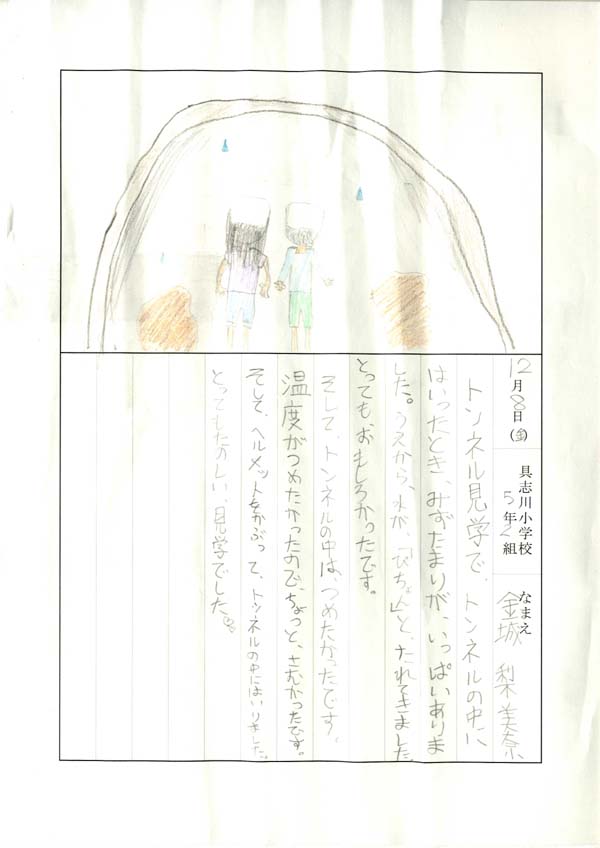 12月8日(金) 具志川小学校 5年2組 なまえ 金城 梨美奈
トンネル見学で、トンネルの中に
はいったとき、みずたまりが、いっぱいありま
した。うえから、水が、「ぴちょん」と、たれてきました。
とっても、おもしろかったです。
そして、トンネルの中は、つめたかったです。
温度がつめたかったので、ちょっと、さむかったです。
そして、ヘルメットをかぶって、トンネルの中にはいりました。
とってもたのしい、見学でした。